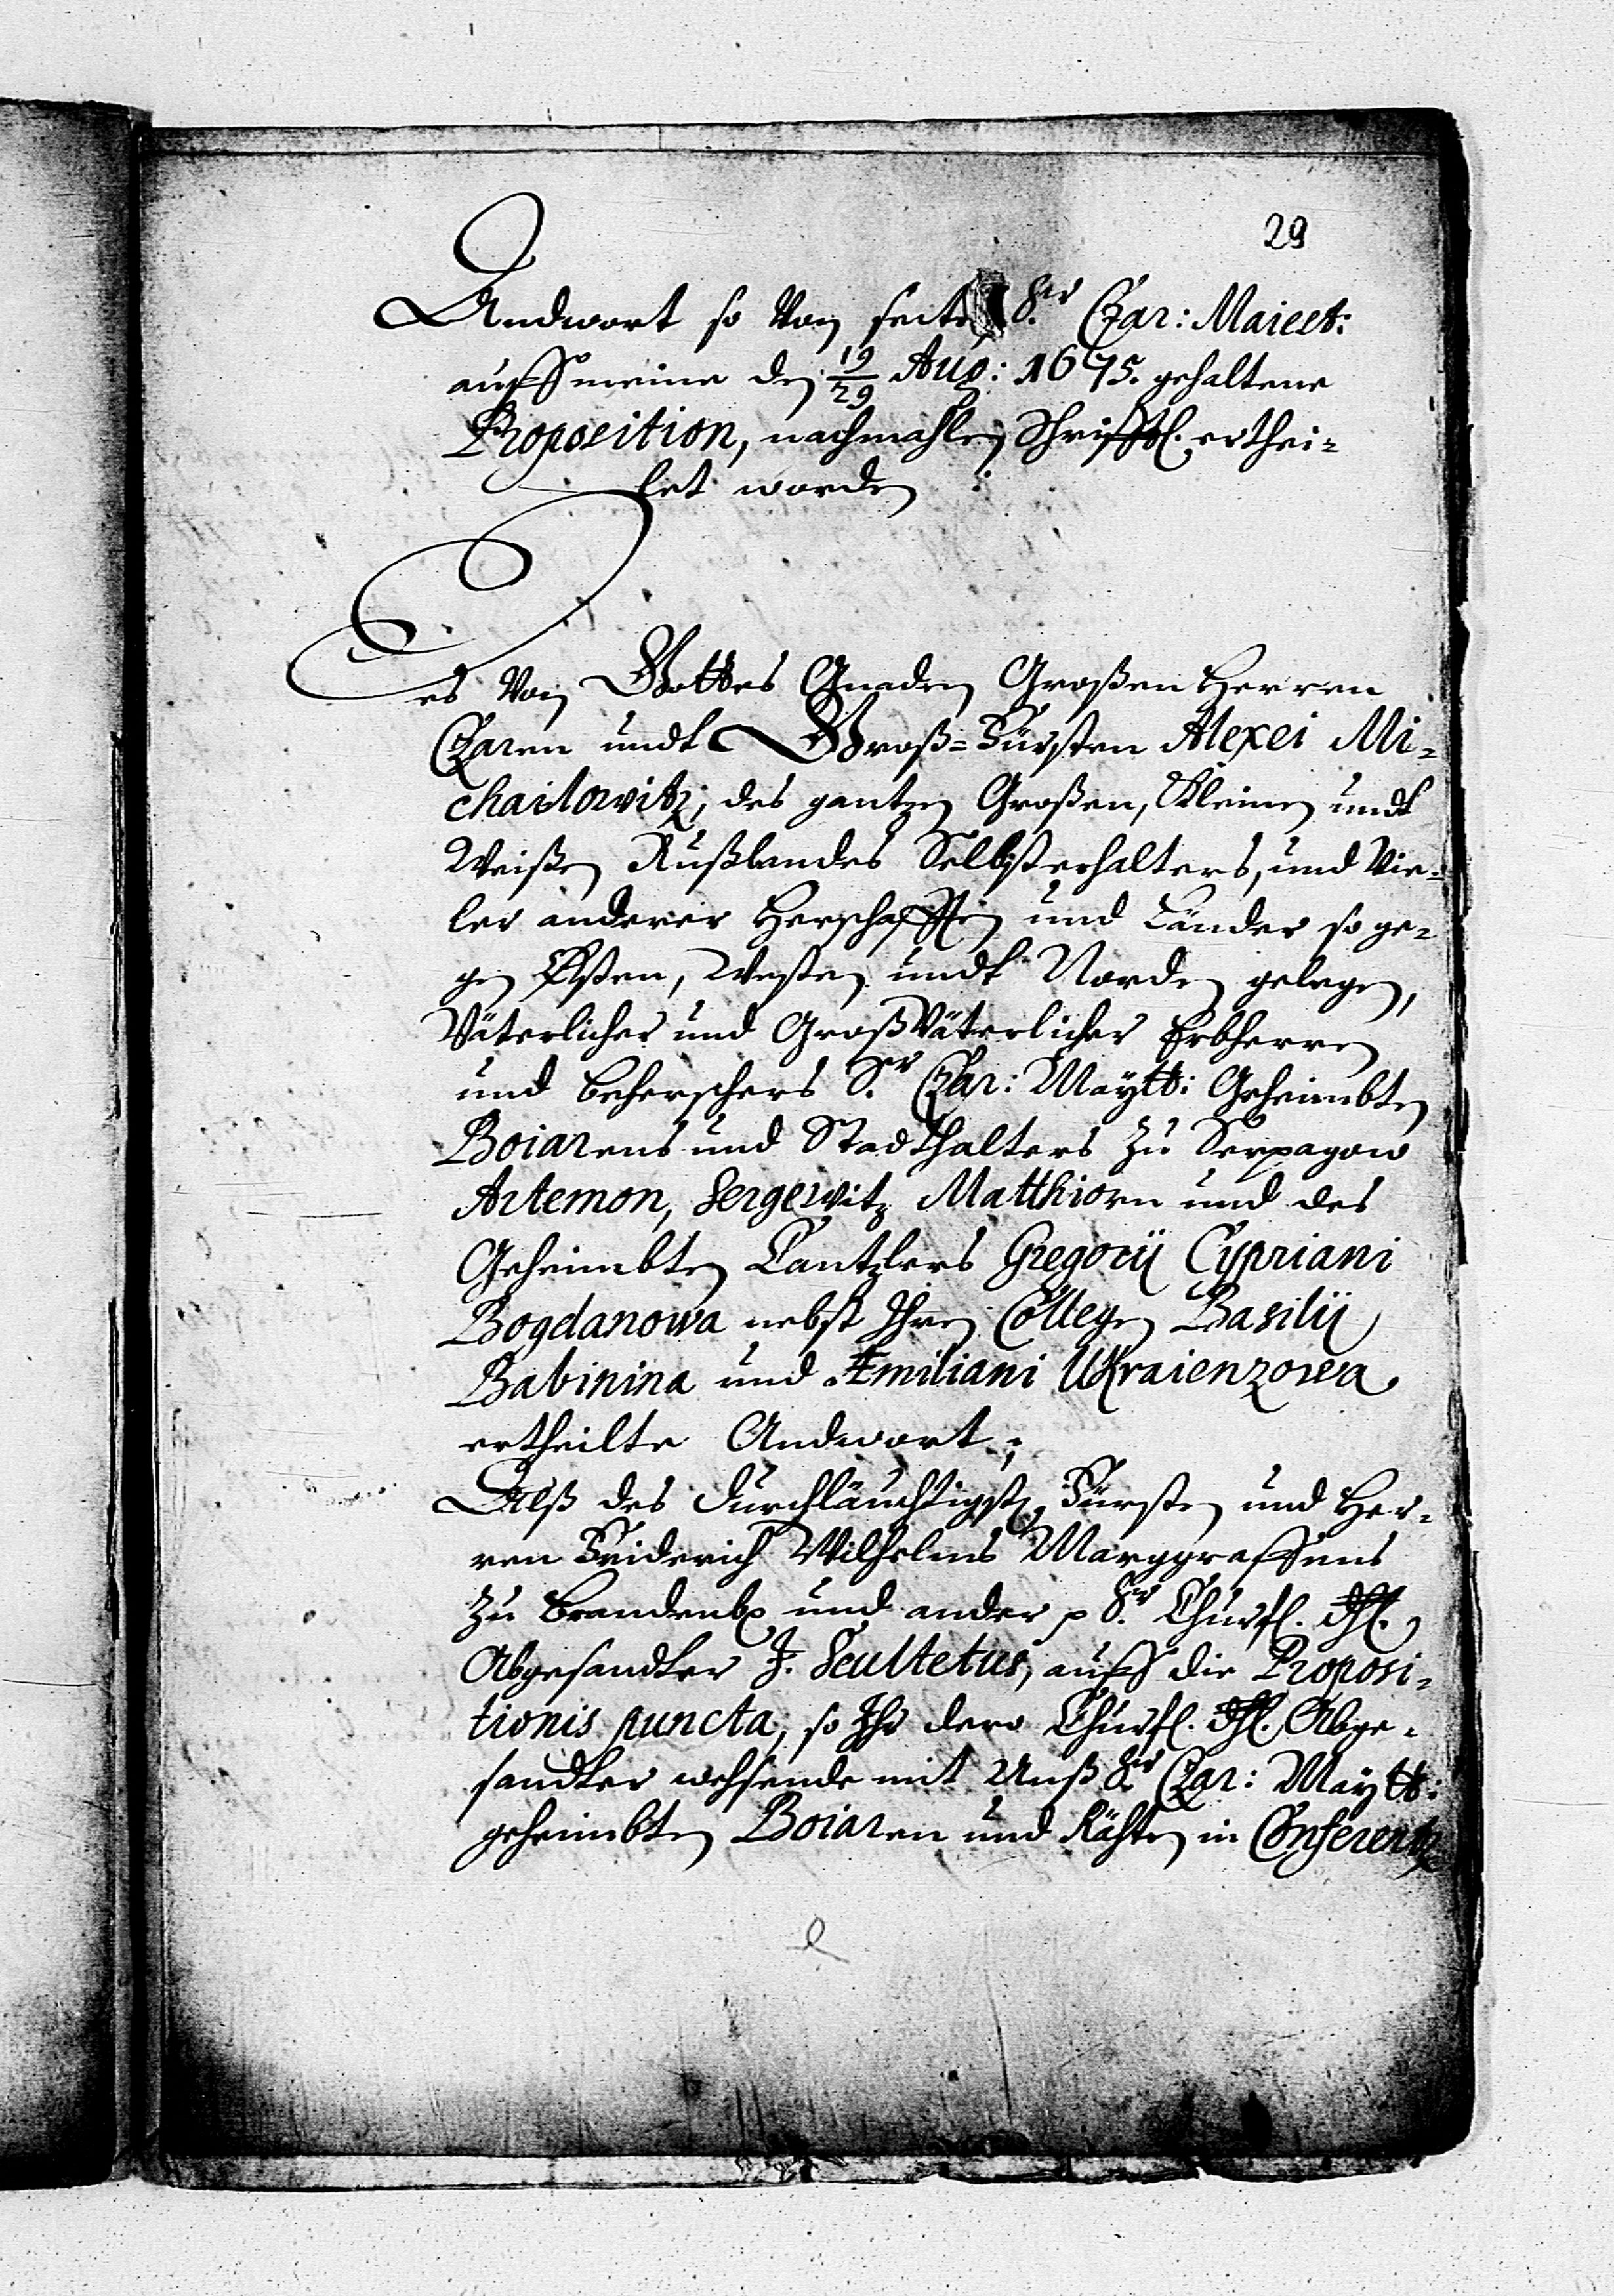 29
Andwort so Von seiten Sr. Czar: Maieet:
auff meine den 19/29 Aug: 1675. gehaltene
Proposition, nachmahlen Schrifftl. erthei-
let worden:
Des Von Gottes Gnaden Großen Herren
Czaren undt Groß-Fürsten Alexei Mi-
chailowitz, des gantzen Großen, Kleinen undt
Weißen Rußlandes Selbsterhalters, und Vie-
ler anderer Herschafften und Länder so ge-
gen Osten, Westen undt Norden gelegen,
Väterlicher und Großväterlicher Erbherren
und beherschers Sr. Czar: Maytt: Geheimbten
Boiarens und Stadthalters zu Serpagow
Artemon, Sergewitz Matthiorn und des
Geheimbten Cantzlers Gregorij Cypriani
Bogdanowa nebst Ihren Collegen Basilij
Babinina und Æmiliani Ukraienzowa
ertheilte Andwort;
Alß des durchläuchtigsten Fürsten und Her-
ren Friderich Wilhelms Marggraffens
zu Brandenb und ander p Sr. Churfl. Dhl.
Abgesandter J. Scultetus, auff die Proposi-
tionis puncta, so Ihr dero Churfl. Dhl. Abge-
sandter wehsende mit Unß Sr. Czar: Maytt:
geheimbten Boiaren und Rähten in Conferentz